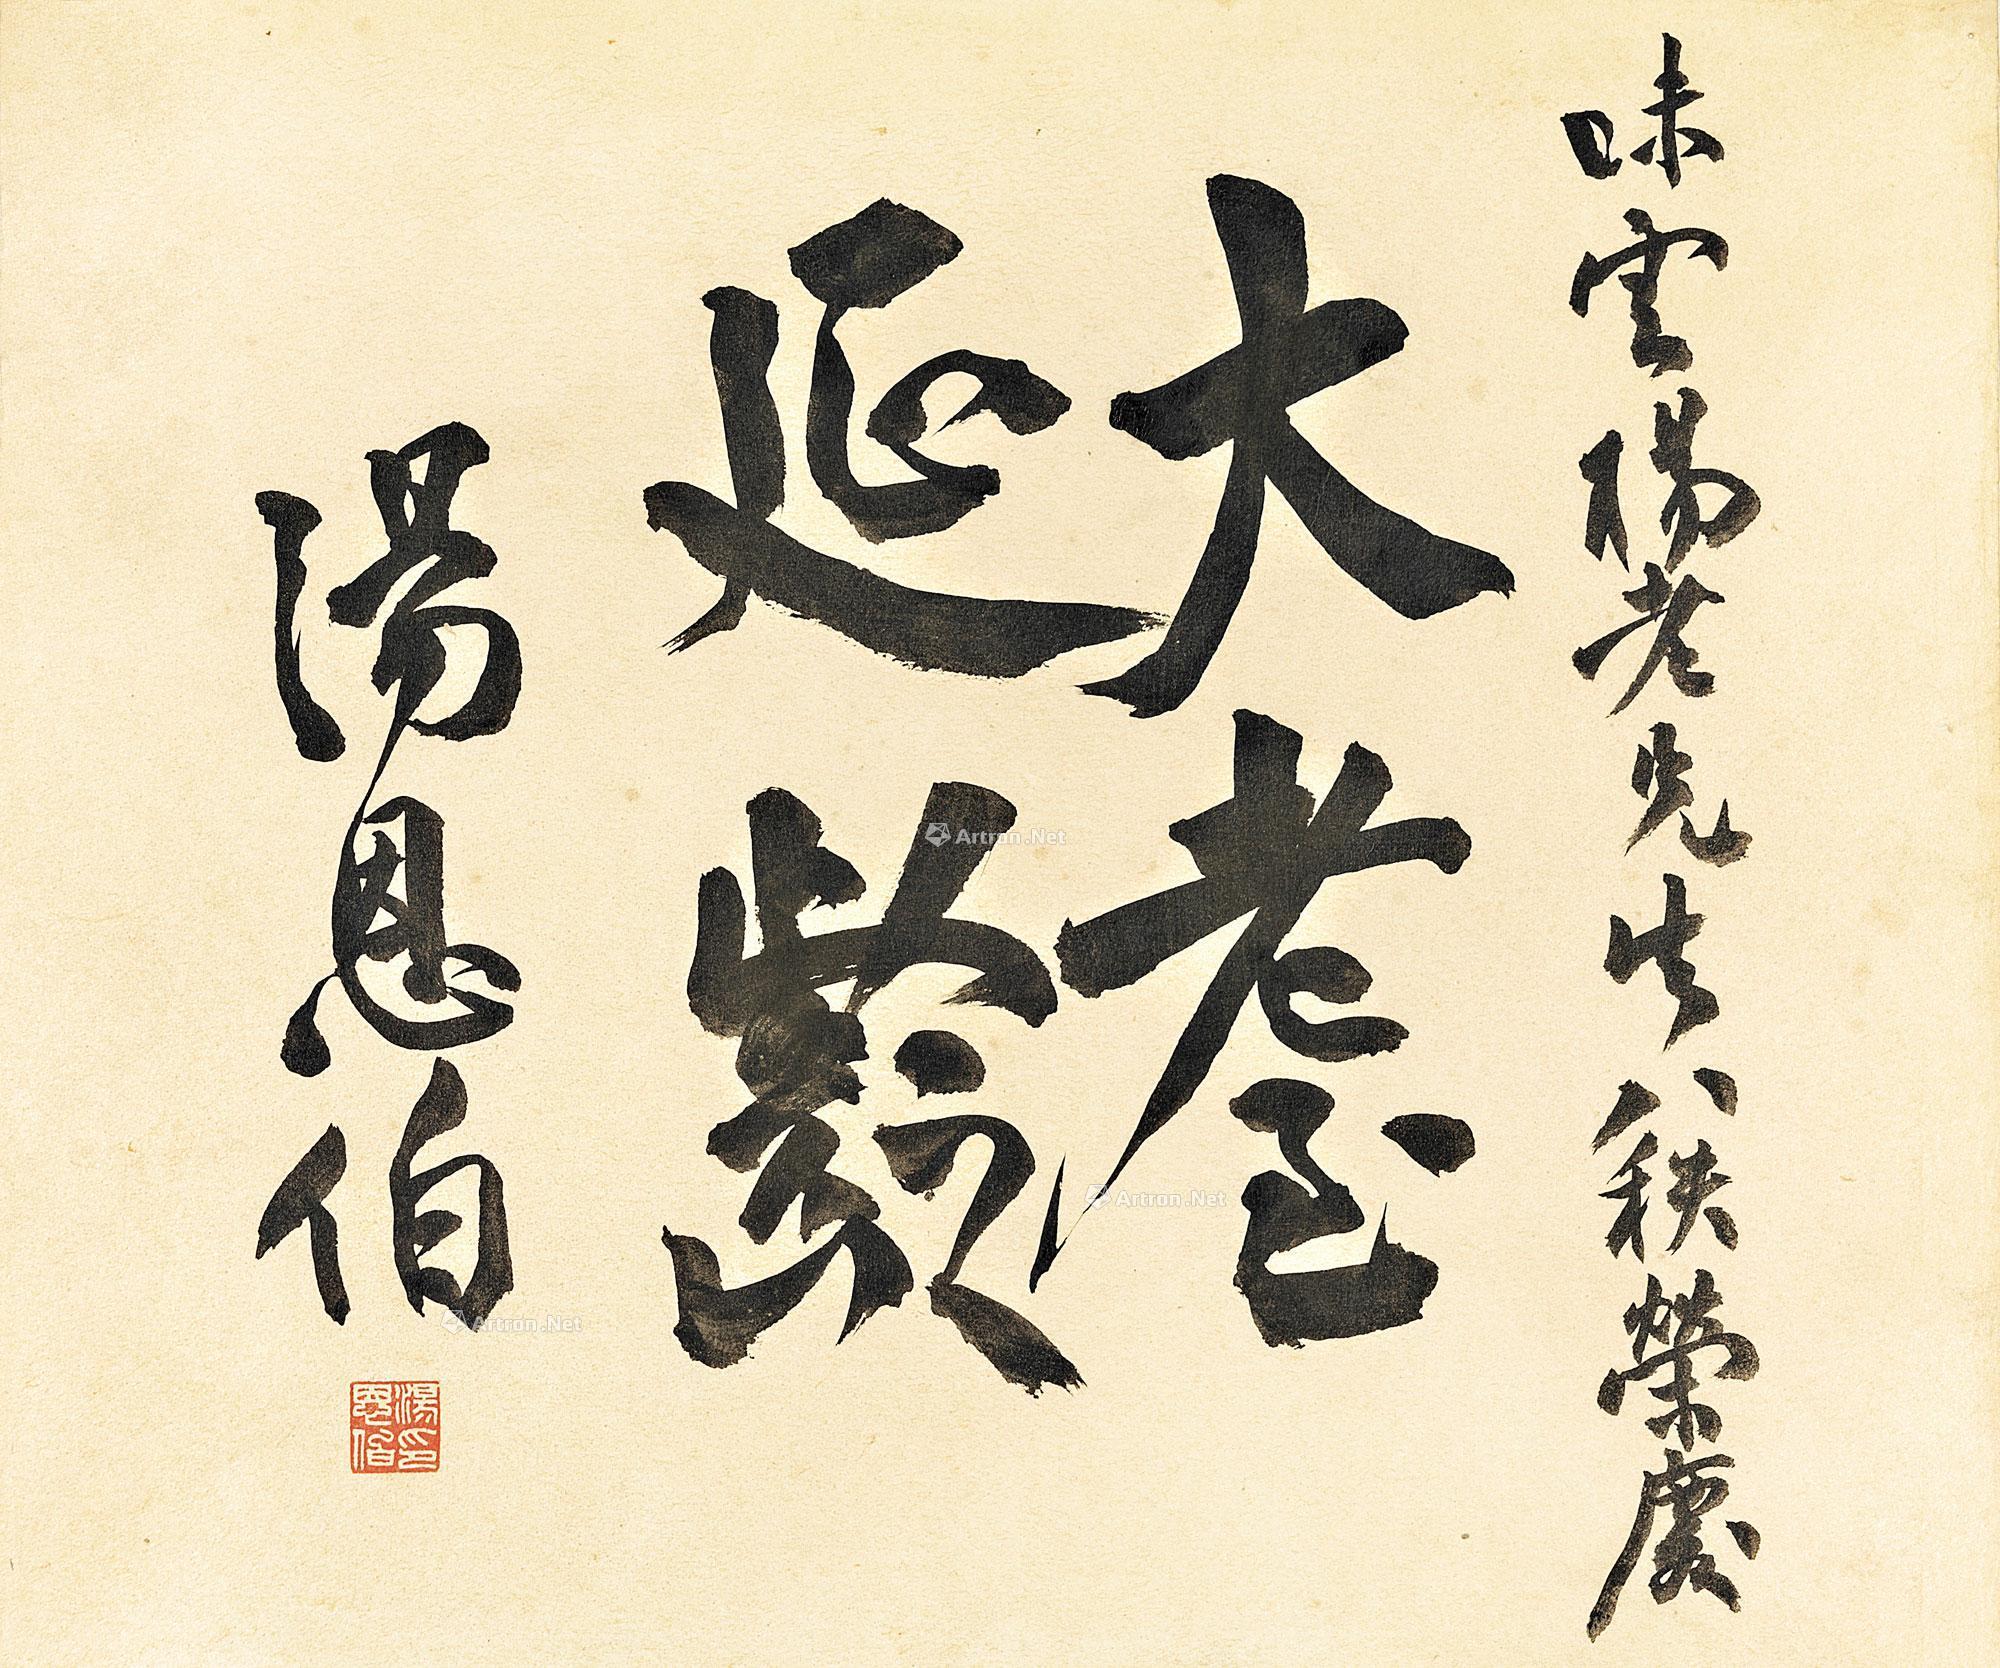 味雲楊老先生八秩榮慶
大耋
延齡
湯恩伯
湯恩伯印
Artron.Net
Artron.Net
Artron.Net